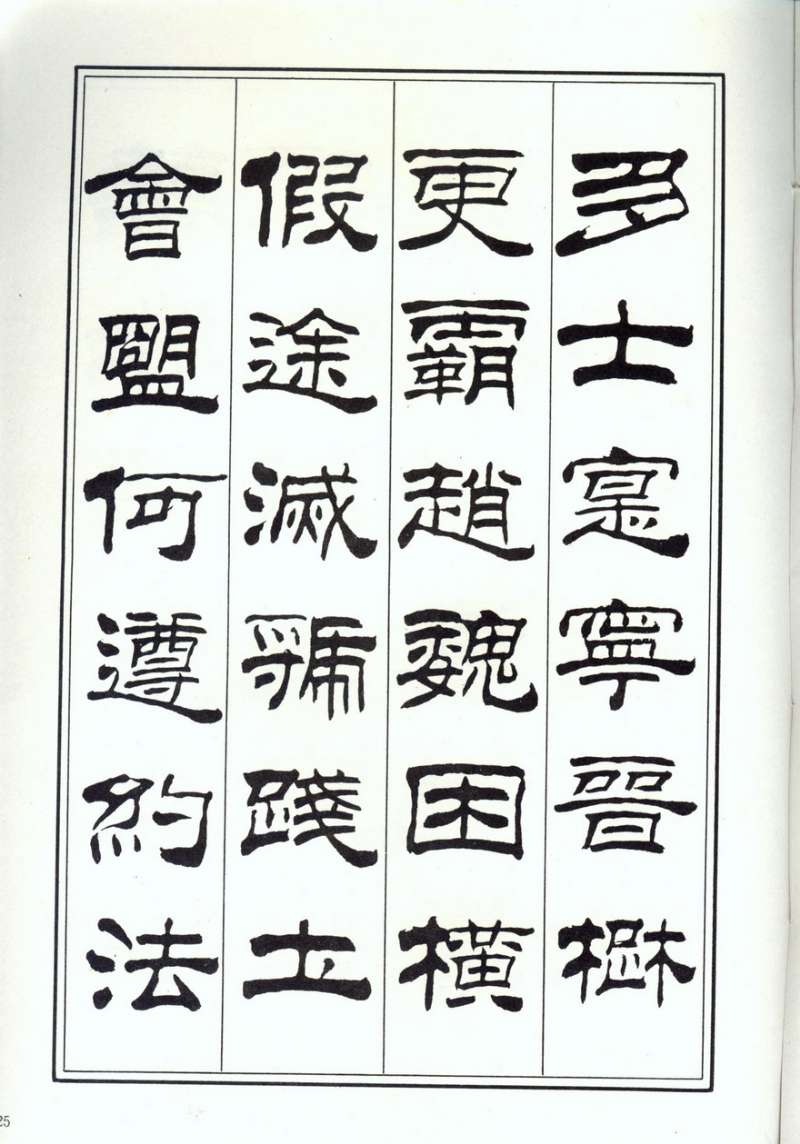 多士寔寧晉楚
更霸趙魏困橫
假途滅虢踐土
會盟何遵約法
25